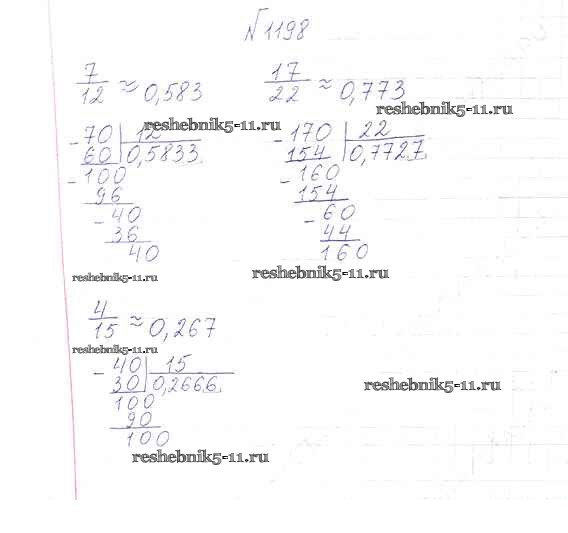 №1198
7/12 ≈ 0,583
17/22 ≈ 0,773
reshebnik5-11.ru
reshebnik5-11.ru
- 70 | 12
60 | 0,5833
- 100
96
- 40
36
40
- 170 | 22
154 | 0,7727
- 160
154
- 60
44
160
reshebnik5-11.ru
reshebnik5-11.ru
4/15 ≈ 0,267
reshebnik5-11.ru
- 40 | 15
30 | 0,2666
100
90
100
reshebnik5-11.ru
reshebnik5-11.ru